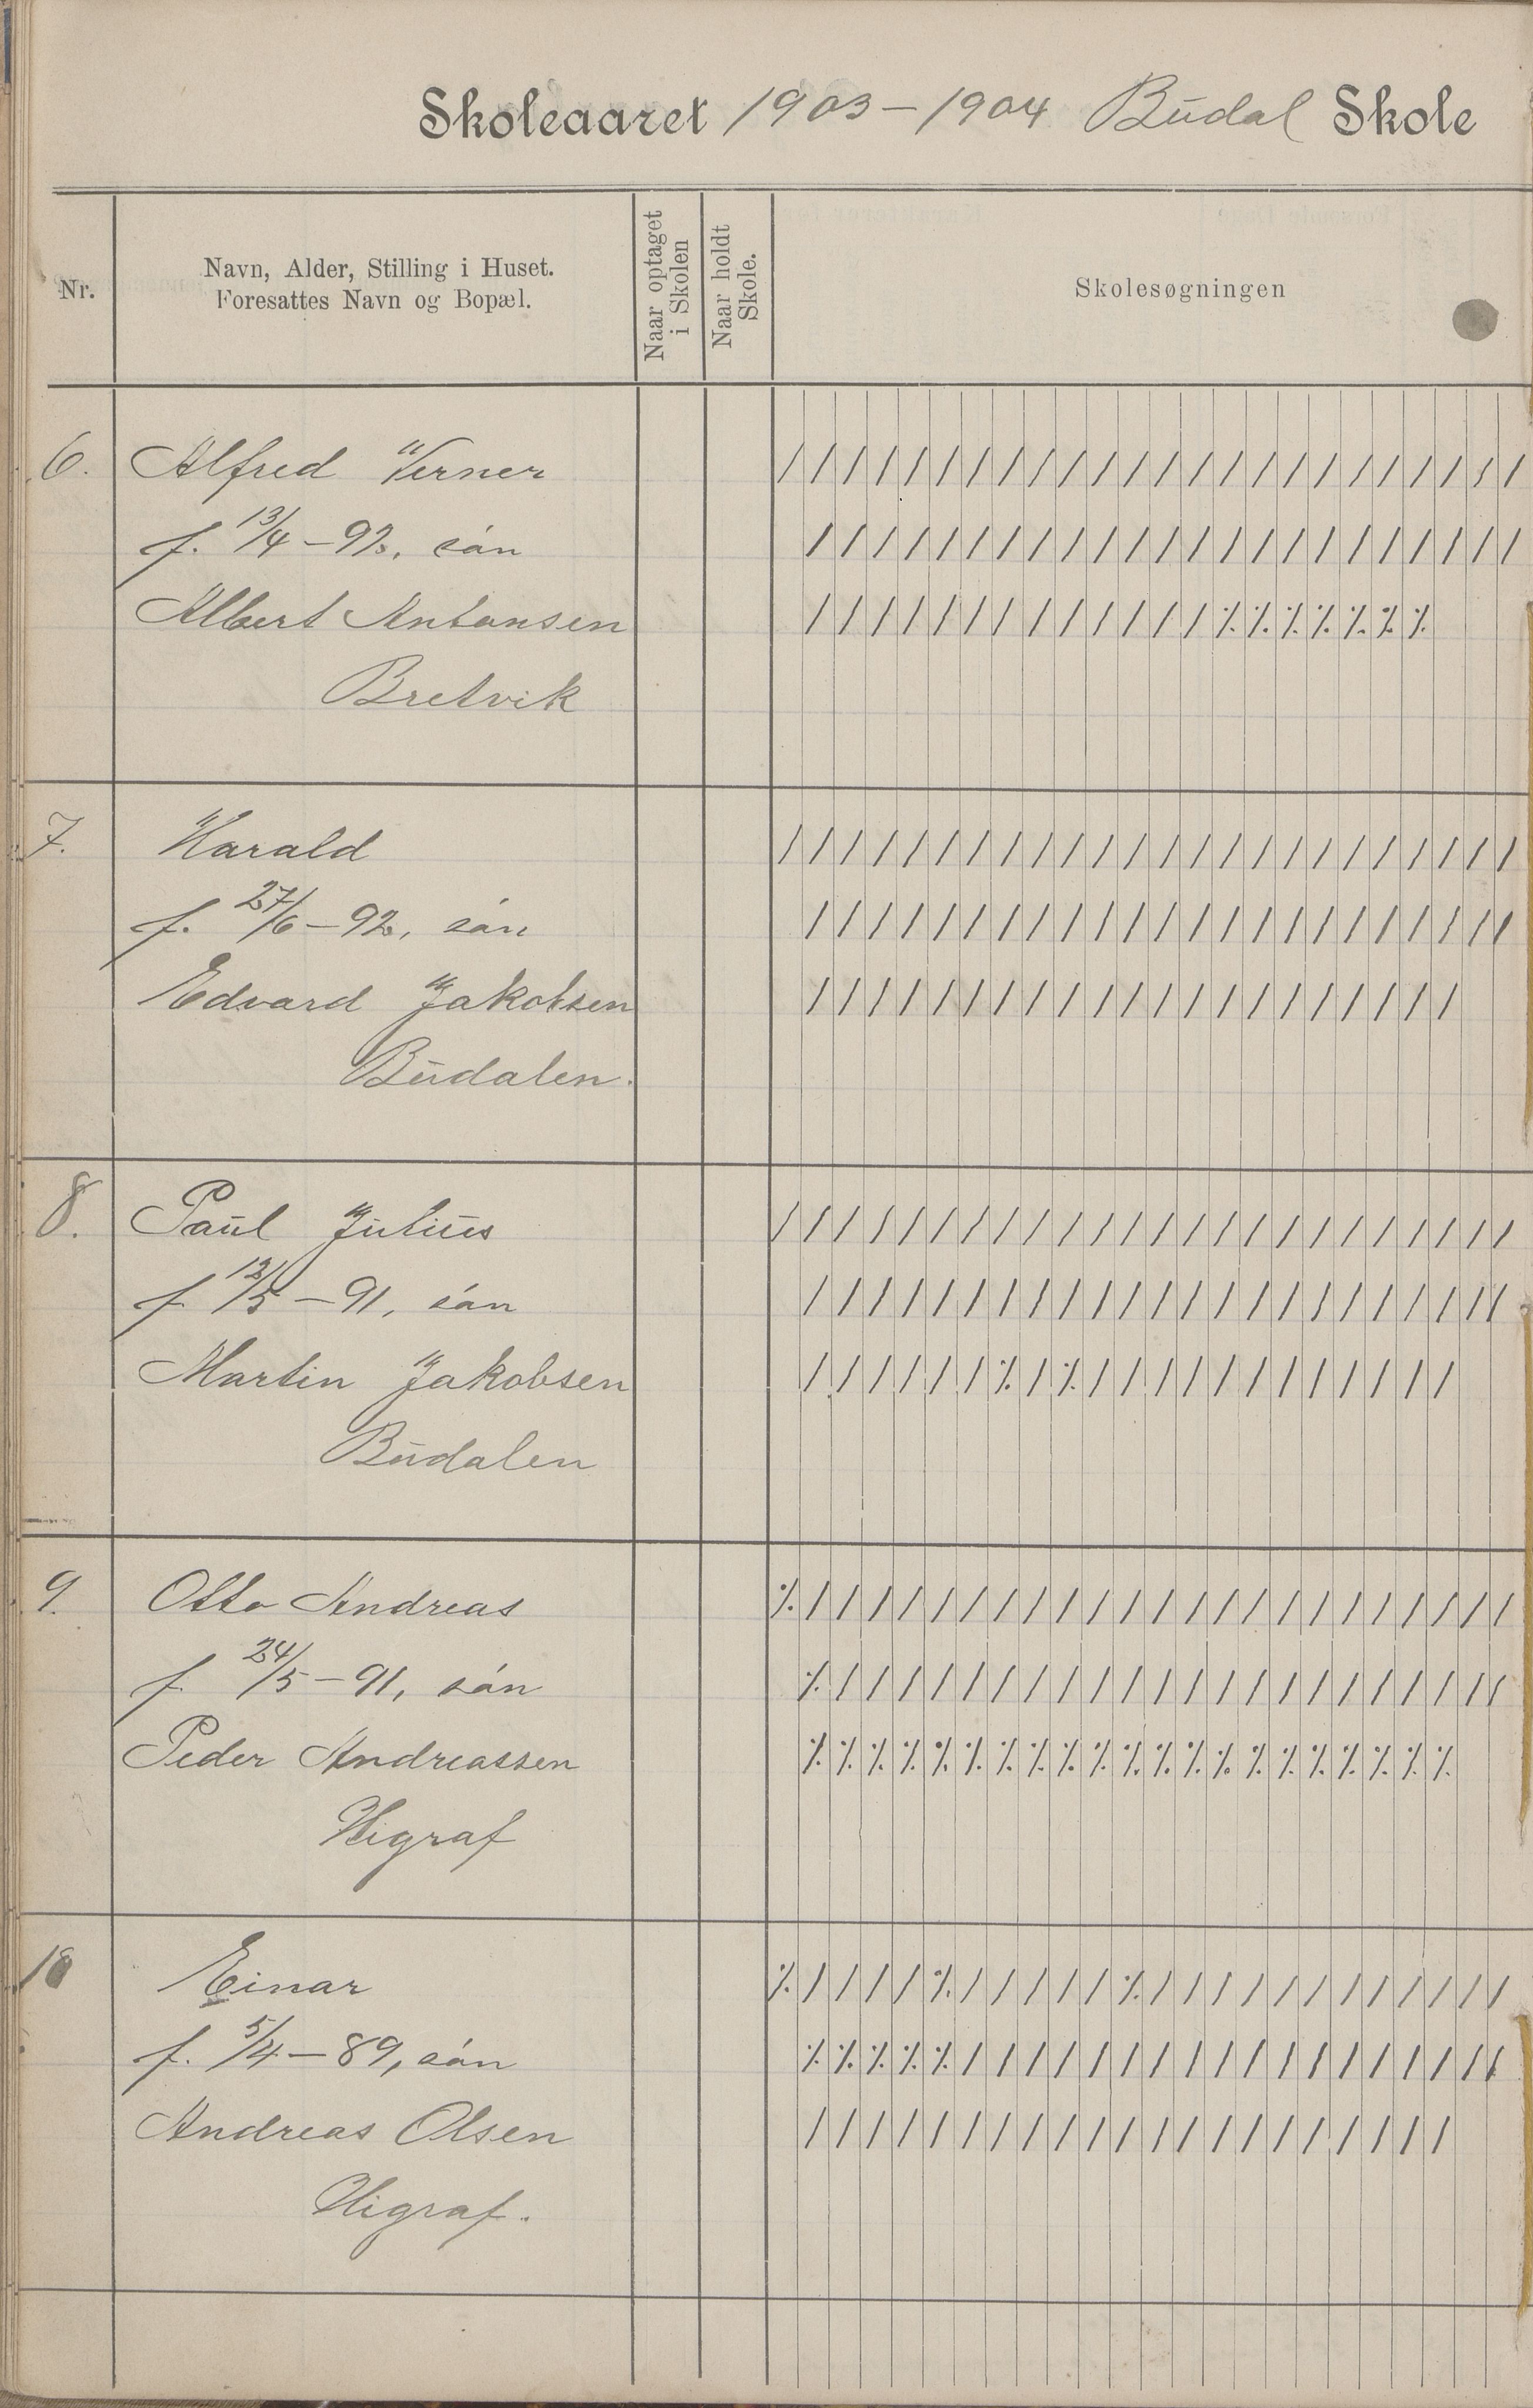 Skoleaaret 1903-1904 Budal Skole
Nr.
Navn, Alder, Stilling i Huset.
Foresattes Navn og Bopæl.
Naar optaget
i Skolen
Naar holdt
Skole.
Skolesøgningen
6. Alfred Verner / / / / / / / / / / / / / / / / / / / / / / / /
f. 13/4-92, søn / / / / / / / / / / / / / / / / / / / / / / /
Albert Antonsen / / / / / / / / / / / / / ٪ ٪ ٪ ٪ ٪ ٪ ٪
Bretvik
7. Harald / / / / / / / / / / / / / / / / / / / / / / / /
f. 27/6-92, søn / / / / / / / / / / / / / / / / / / / / / / /
Edvard Jakobsen / / / / / / / / / / / / / / / / / / / / /
Budalen.
8. Paul Julius / / / / / / / / / / / / / / / / / / / / / / / /
f 12/5-91, søn / / / / / / / / / / / / / / / / / / / / / / /
Martin Jakobsen / / / / / / ٪ / ٪ / / / / / / / / / / / /
Budalen
9. Otto Andreas ٪ / / / / / / / / / / / / / / / / / / / / / / /
f 24/5-91, søn ٪ / / / / / / / / / / / / / / / / / / / / / /
Peder Andreassen ٪ ٪ ٪ ٪ ٪ ٪ ٪ ٪ ٪ ٪ ٪ ٪ ٪ ٪ ٪ ٪ ٪ ٪ ٪ ٪ ٪
Higraf
10 Einar ٪ / / / / ٪ / / / / / ٪ / / / / / / / / / / / /
f. 5/4-89, søn ٪ ٪ ٪ ٪ ٪ / / / / / / / / / / / / / / / / / /
Andreas Olsen / / / / / / / / / / / / / / / / / / / / /
Higraf.